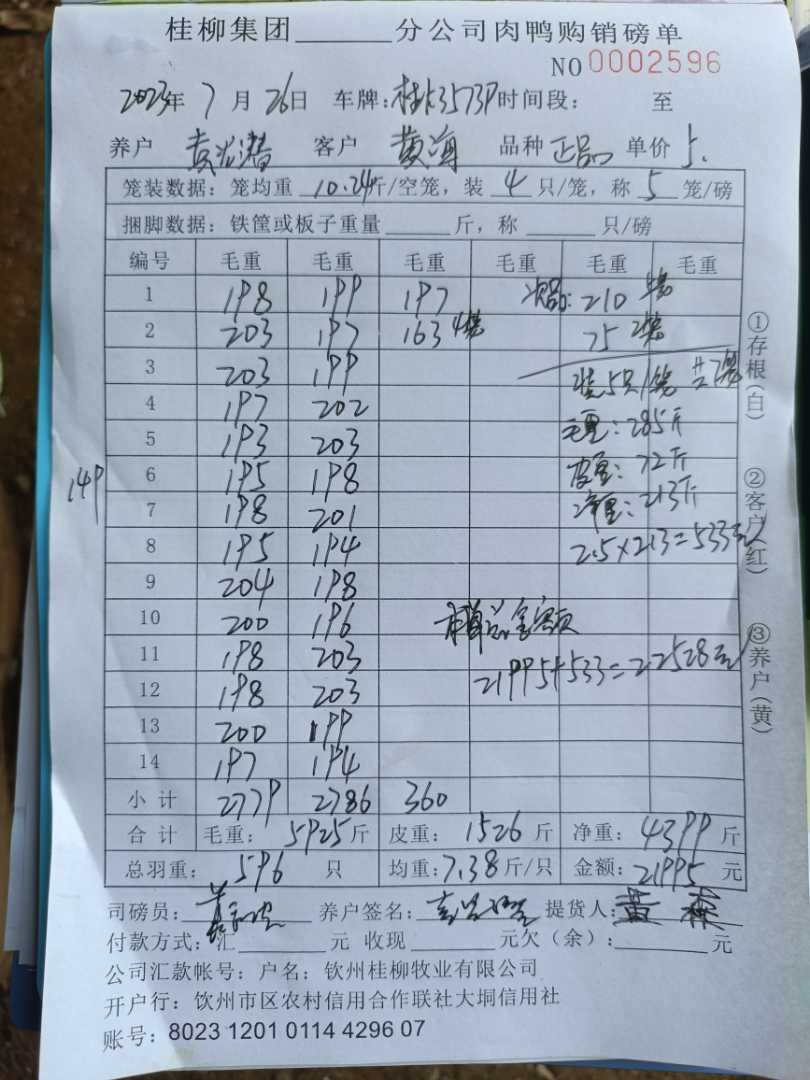 桂柳集团______分公司肉鸭购销磅单
NO 0002596
2023年 7 月 26日 车牌: 桂 3573P 时间段: 至
养户 客户 黄海 品种 正品 单价 5.
笼装数据: 笼均重 10.24斤/空笼, 装 4 只/笼, 称 5 笼/磅
捆脚数据: 铁筐或板子重量______斤, 称______只/磅
编号 毛重 毛重 毛重 毛重 毛重 毛重
1 198 199 197 次品: 210 5笼
2 203 197 163 4笼 75 2笼
3 203 199 装5只/笼 共7笼
4 197 202
5 193 203 毛重: 285斤
6 195 198 皮重: 72斤
149
7 198 201 净重: 213斤
8 195 194 2.5×213=533元
9 204 198
10 200 196 本单总金额
11 198 203 21995+533=22528元
12 198 203
13 200 199
14 197 194
小计 2779 2786 360
合计 毛重: 5925斤 皮重: 1526斤 净重: 4399斤
总羽重: 596 只 均重: 7.38斤/只 金额: 21995元
司磅员: 养户签名: 提货人: 黄
付款方式: 汇______元 收现______元欠(余):______元
公司汇款帐号: 户名: 钦州桂柳牧业有限公司
开户行: 钦州市区农村信用合作联社大垌信用社
账号: 8023 1201 0114 4296 07
①存根(白) ②客户(红) ③养户(黄)